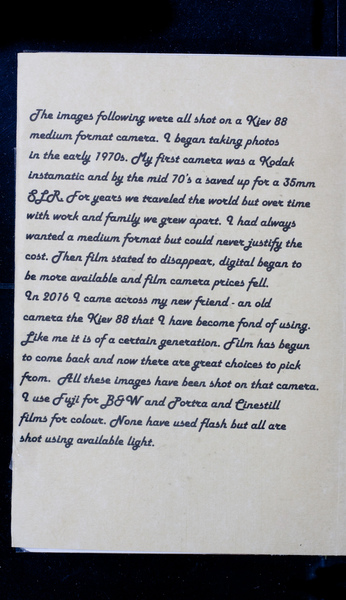 The images following were all shot on a Kiev 88
medium format camera. I began taking photos
in the early 1970s. My first camera was a Kodak
instamatic and by the mid 70's a saved up for a 35mm
SLR. For years we traveled the world but over time
with work and family we grew apart. I had always
wanted a medium format but could never justify the
cost. Then film stated to disappear, digital began to
be more available and film camera prices fell.
In 2016 I came across my new friend - an old
camera the Kiev 88 that I have become fond of using.
Like me it is of a certain generation. Film has begun
to come back and now there are great choices to pick
from. All these images have been shot on that camera.
I use Fuji for B&W and Portra and Cinestill
films for colour. None have used flash but all are
shot using available light.